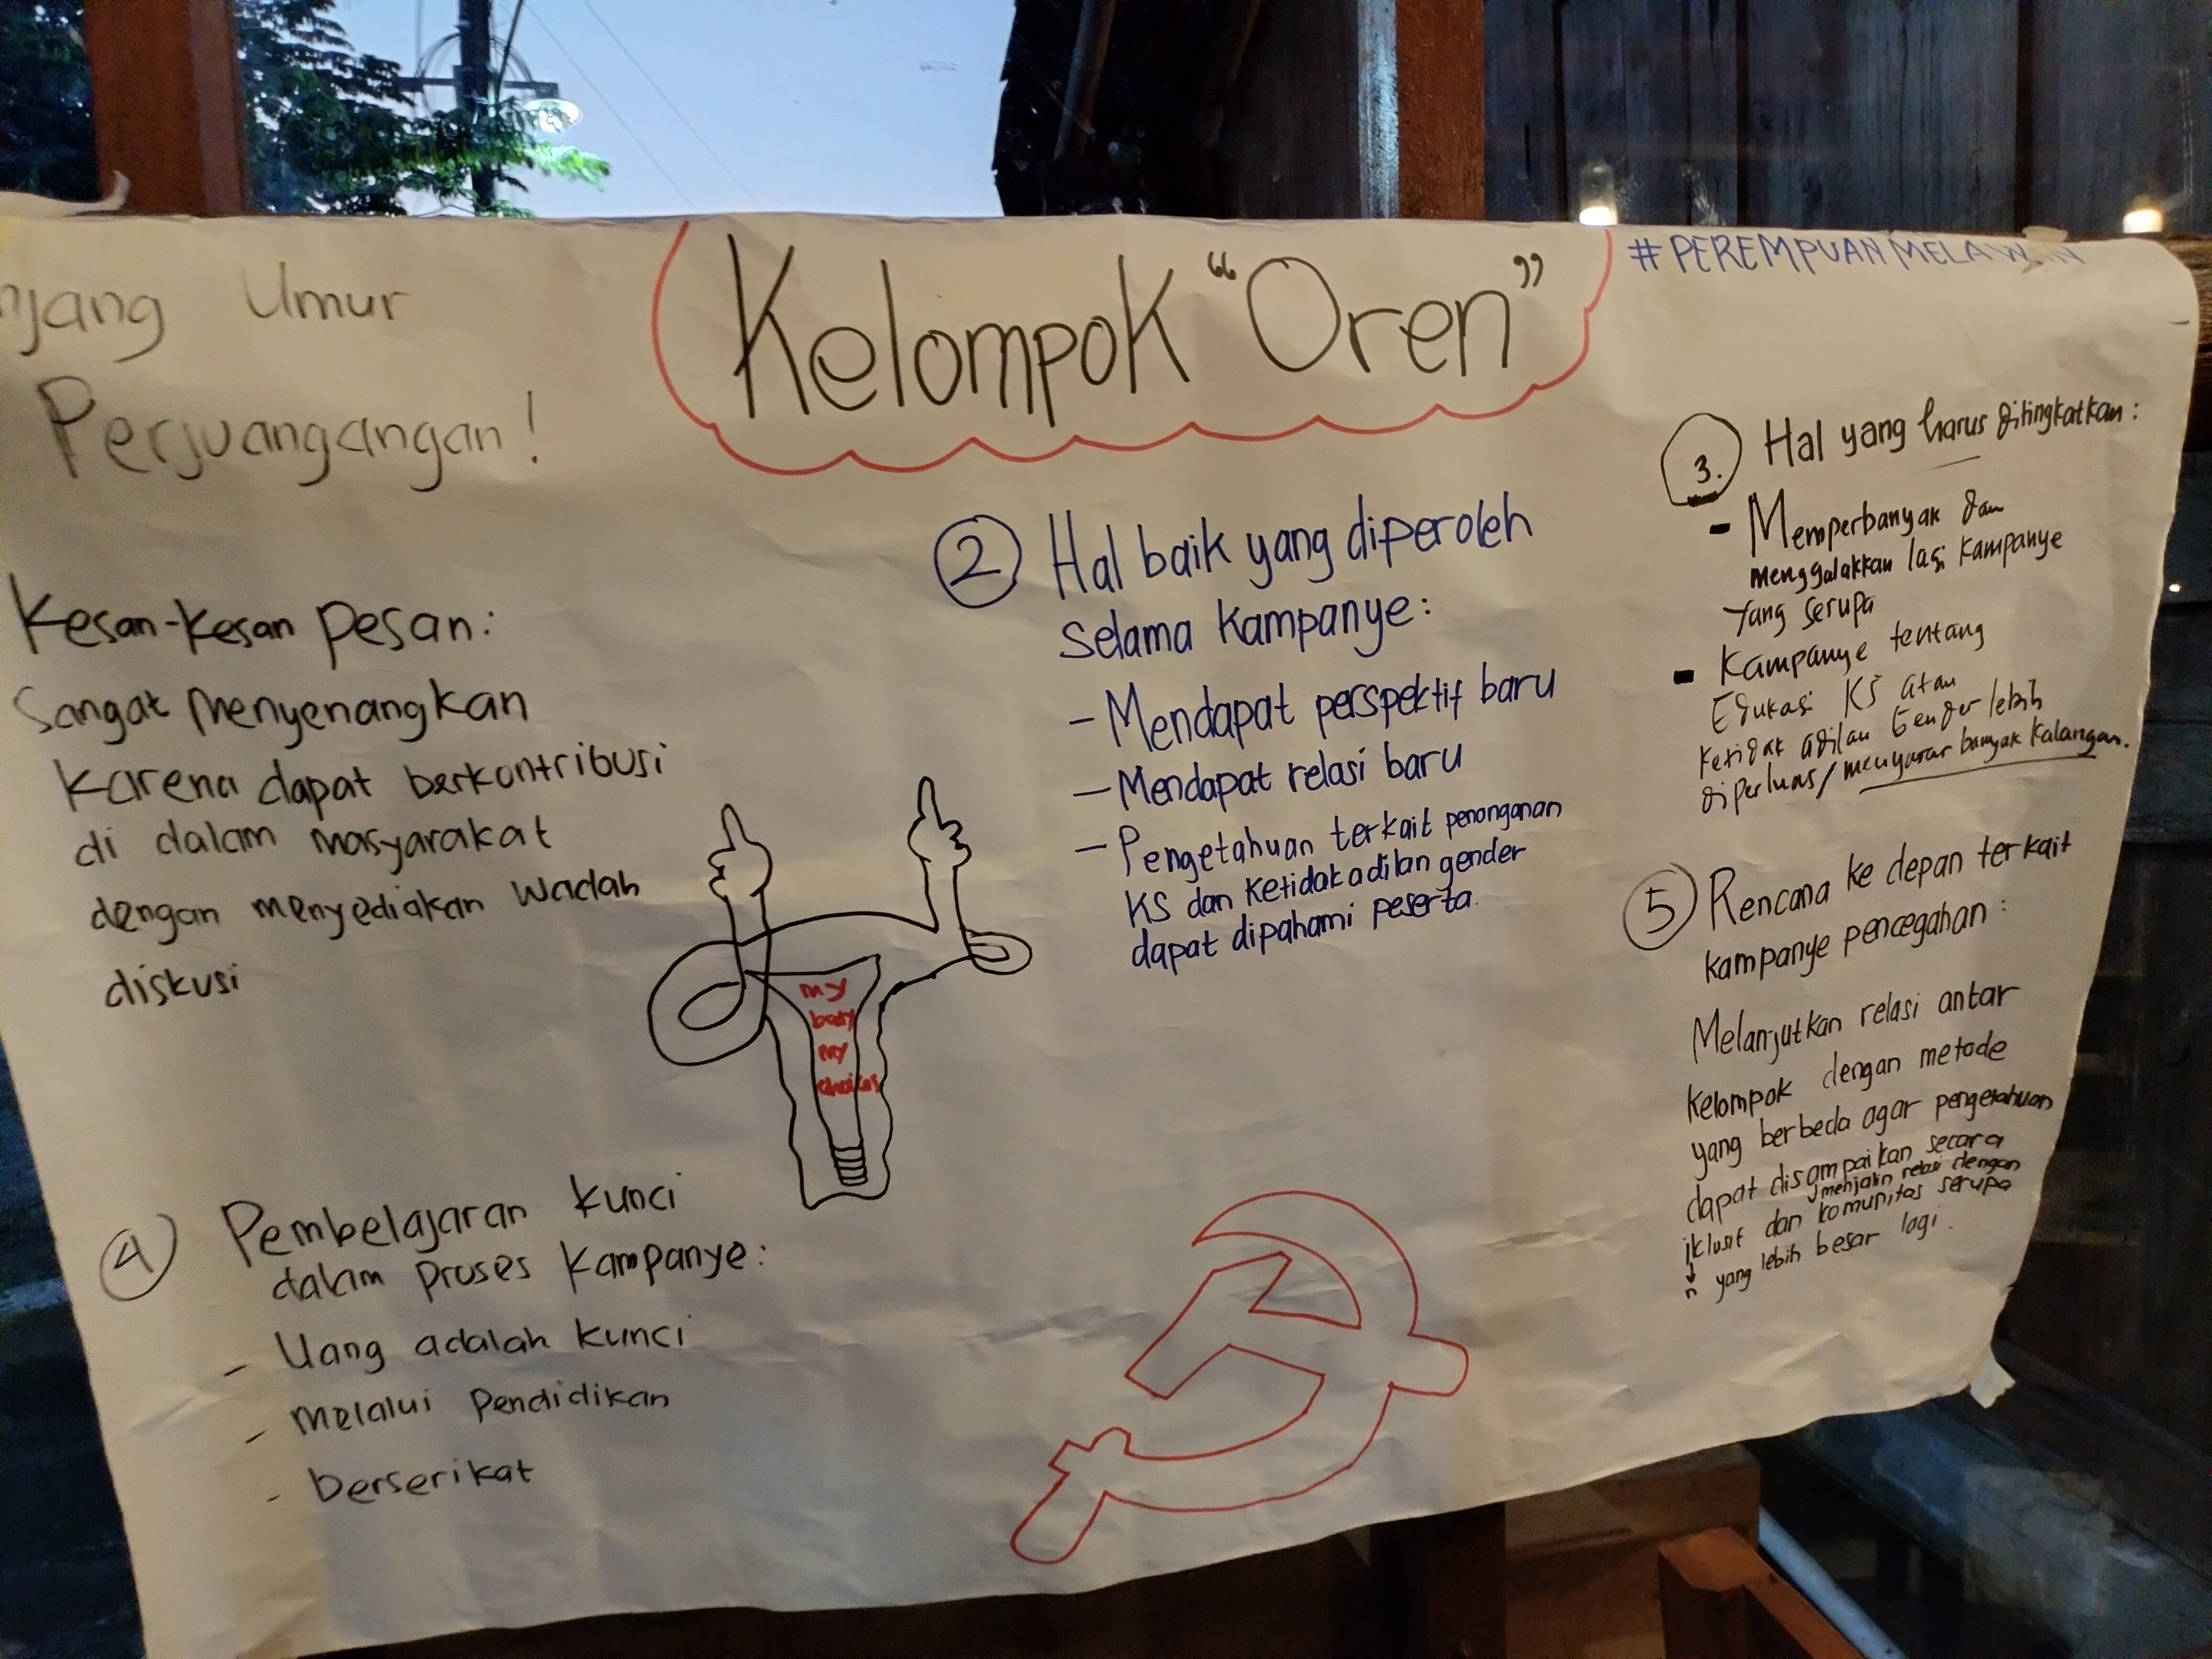 njang Umur
Perjuangangan!
Kelompok "Oren"
#PEREMPUANMELAWAN
Kesan-kesan pesan:
Sangat Menyenangkan
karena dapat berkontribusi
di dalam masyarakat
dengan menyediakan wadah
diskusi
2 Hal baik yang diperoleh
selama kampanye:
- Mendapat perspektif baru
- Mendapat relasi baru
- Pengetahuan terkait penanganan
KS dan Ketidakadilan gender
dapat dipahami peserta.
3. Hal yang harus ditingkatkan:
- Memperbanyak dan
menggalakkan lagi kampanye
yang serupa
- Kampanye tentang
Edukasi KS atau
ketidak adilan gender lebih
diperluas/menyasar banyak kalangan.
my
body
my
choices
4 Pembelajaran kunci
dalam proses kampanye:
- Uang adalah kunci
- melalui pendidikan
- berserikat
5 Rencana ke depan terkait
kampanye pencegahan:
Melanjutkan relasi antar
kelompok dengan metode
yang berbeda agar pengetahuan
dapat disampaikan secara
menjalin relasi dengan
iklusif dan komunitas serupa
n yang lebih besar lagi.